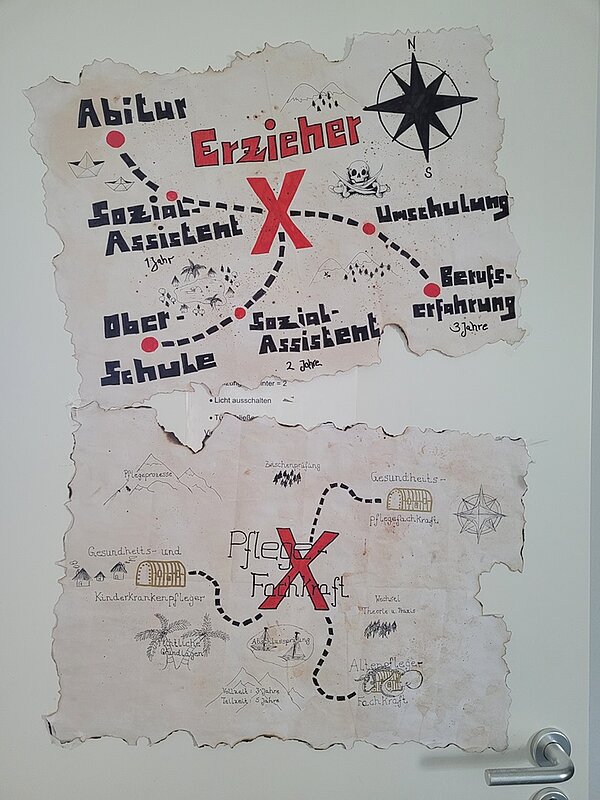 N
Abitur
Erzieher
S
Sozial-
Assistent
1 Jahr
Umschulung
Berufs-
erfahrung
3 Jahre
Ober-
Schule
Sozial-
Assistent
2 Jahre
inter = 2
• Licht ausschalten
Pflegeprozesse
Zwischenprüfung
Gesundheits-
pflegefachkraft
Pflege-
Fachkraft
Gesundheits- und
Kinderkrankenpfleger
Wechsel
Theorie u. Praxis
Grundlagen
Abschlussprüfung
Altenpfleger
Fachkraft
Vollzeit: 3 Jahre
Teilzeit: 5 Jahre